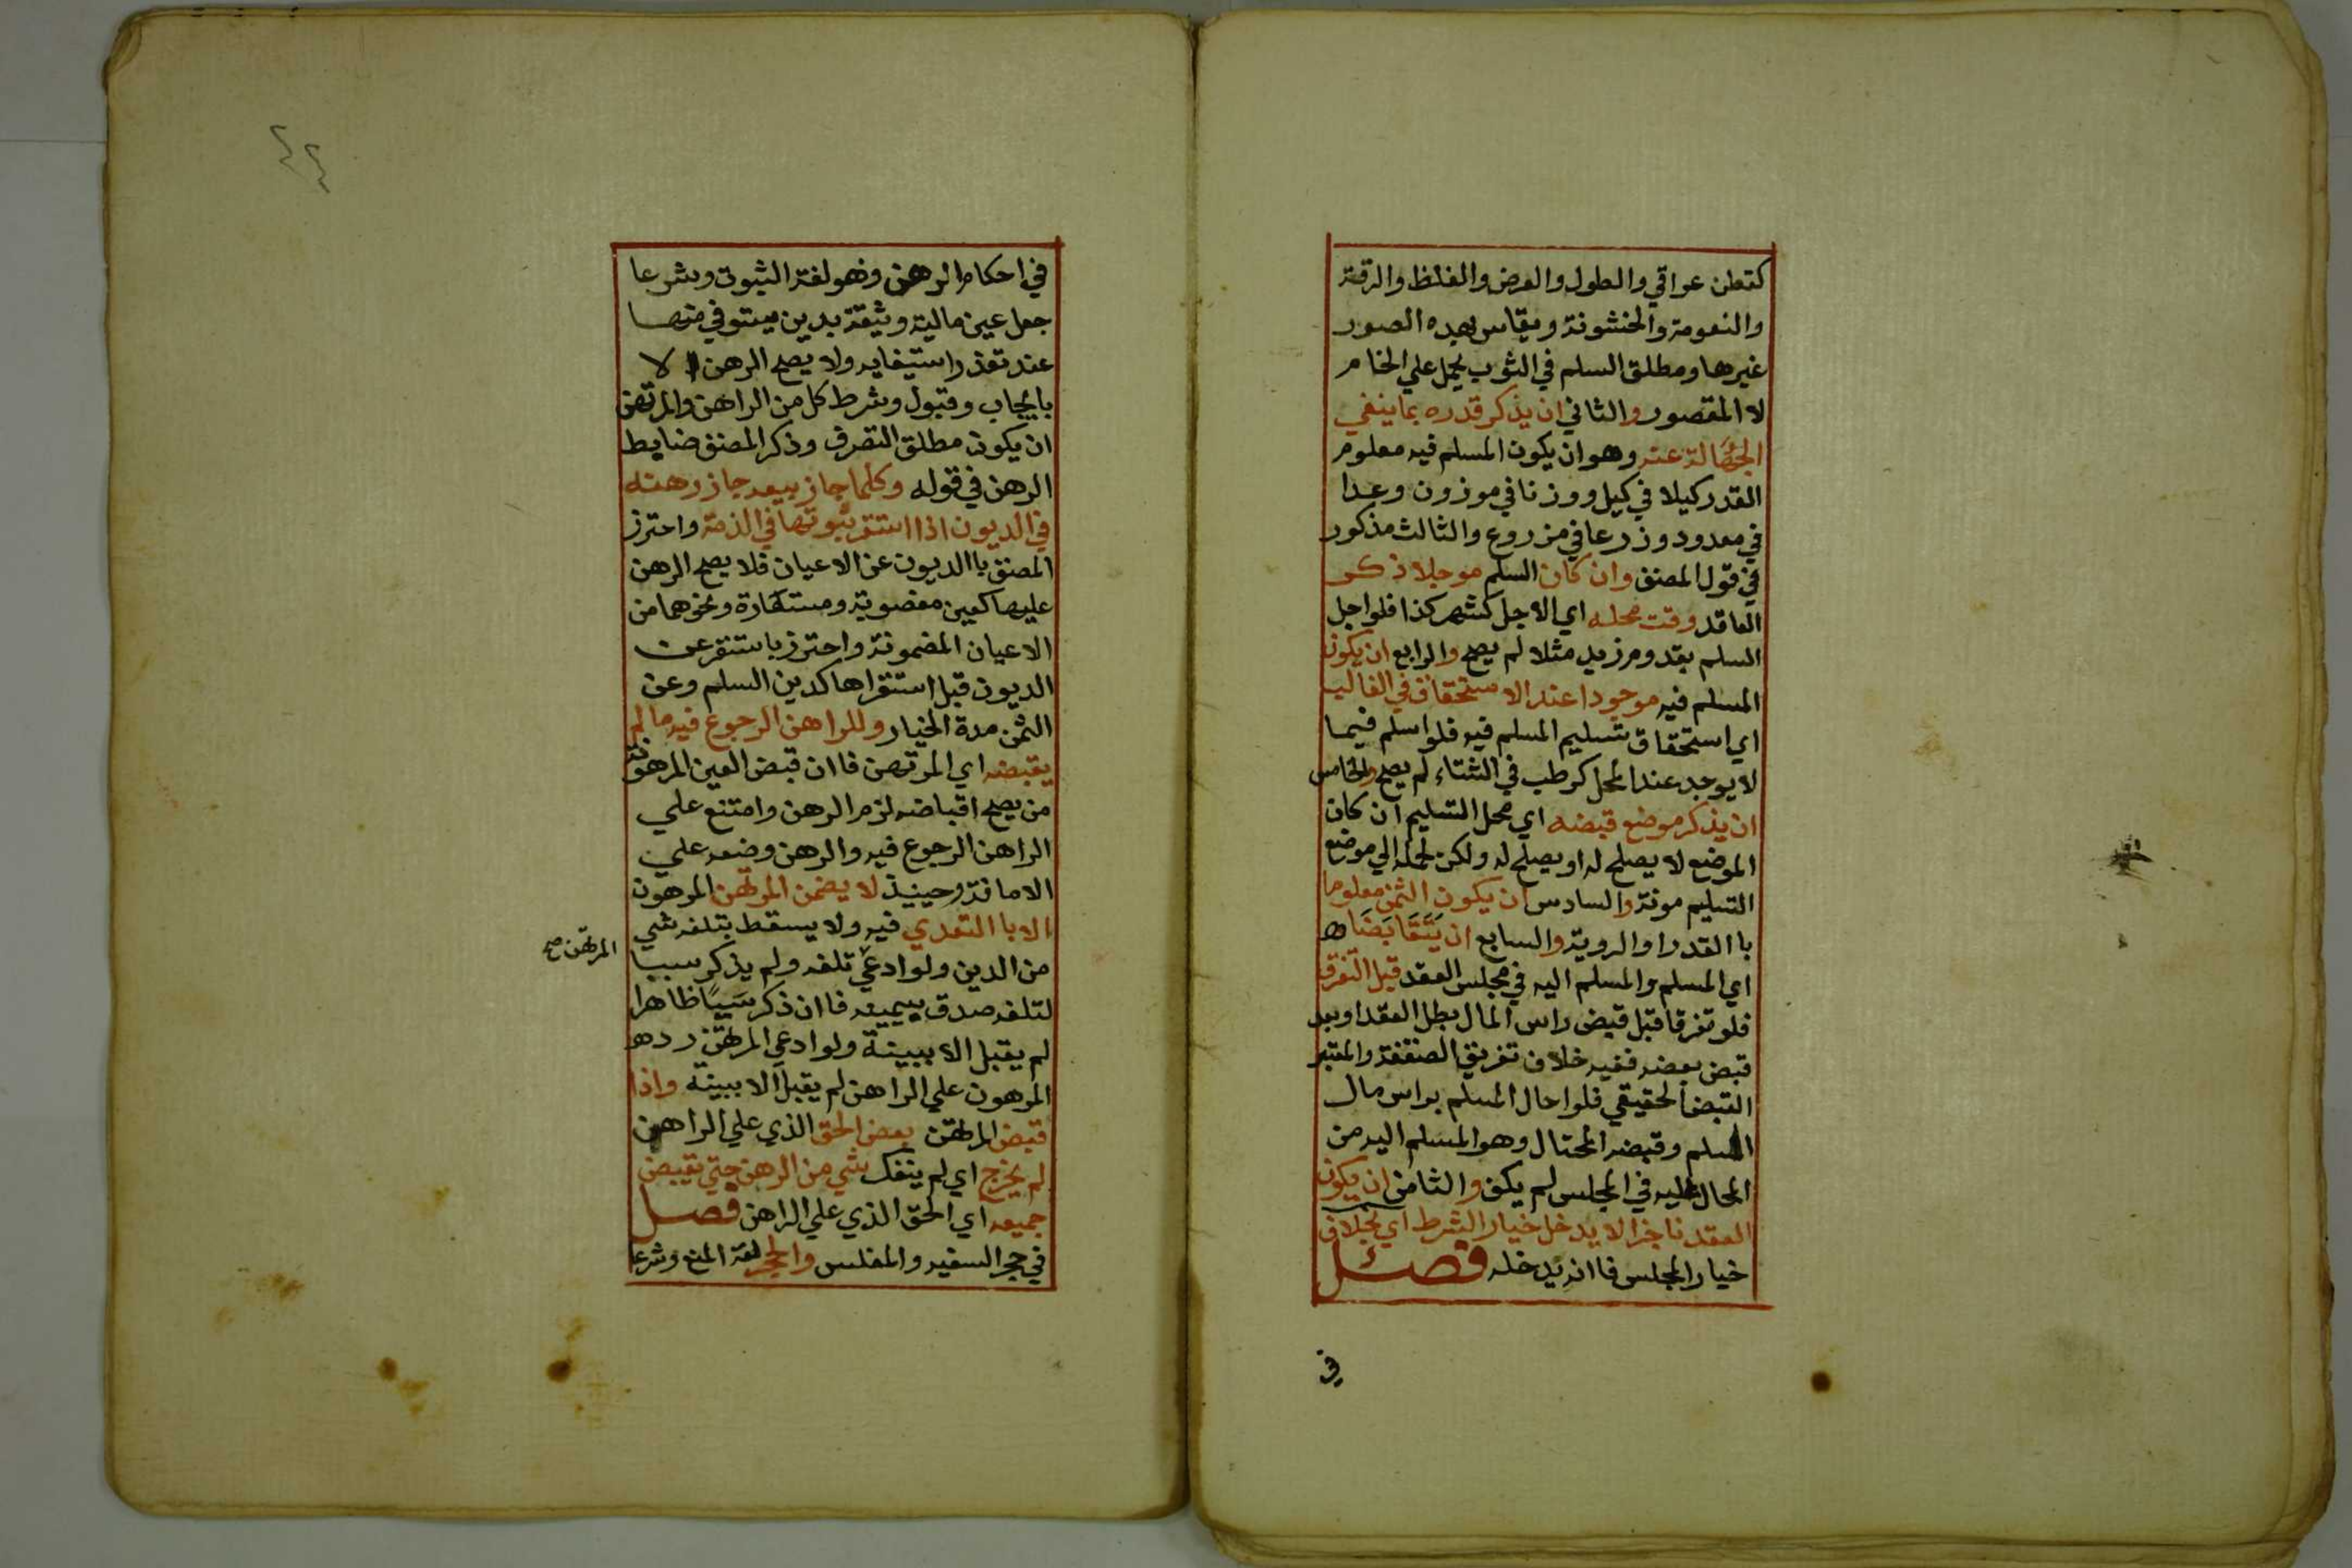 كقطن عراقي والطول والعرض والغلظ والرقة
والنعومة والخشونة ويقاس بهده الصور
غيرها ومطلق السلم في الثوب يحمل علي الخام
لا المقصور والثاني ان يذكر قدره بما ينفي
الجهالة عنه وهو ان يكون المسلم فيه معلوم
القدر كيلا في كيل ووزنا في موزون وعدا
في معدود وزرعا في مزروع والثالث مذكور
في قول المصنف وان كان السلم موجلا ذكر
العاقد وقت محله اي الاجل كشهر كذا فلو اجل
السلم بقدوم زيد مثلا لم يصح والرابع ان يكون
المسلم فيه موجودا عند الاستحقاق في الغالب
اي استحقاق تسليم المسلم فيه فلو اسلم فيما
لا يوجد عند المحل كرطب في الشتاء لم يصح والخامس
ان يذكر موضع قبضه اي محل التسليم ان كان
الموضع لا يصلح له او يصلح له ولكن لحمله الي موضع
التسليم مونة والسادس ان يكون الثمن معلوما
باالقدر او الروية والسابع ان يَتَقَابَضَاه
اي المسلم والمسلم اليه في مجلس العقد قبل التفرق
فلو تفرقا قبل قبض راس المال بطل العقد او بعد
قبض بعضه ففيه خلاف تفريق الصفقة والمعتبر
القبض الحقيقي فلو احال المسلم براس مال
السلم وقبضه المحتال وهو المسلم اليه من
المحال عليه في المجلس لم يكف والثامن ان يكون
العقد ناجزا لا يدخل خيار الشرط اي بخلاف
خيار المجلس فاانه يدخله فصل
في
في احكام الرهن وهو لغة الثبوت وشرعا
جعل عين مالية وثيقة بدين يستوفي منها
عند تعذر استيفايه ولا يصح الرهن الا
بايجاب وقبول وشرط كل من الراهن والمرتهن
ان يكون مطلق التصرف وذكر المصنف ضابط
الرهن في قوله وكلما جاز بيعه جاز رهنه
في الديون اذا استقر ثبوتها في الذمة واحترز
المصنف باالديون عن الاعيان فلا يصح الرهن
عليها كعين مغصوبة ومستعارة ونحوهما من
الاعيان المضمونة واحترز باستقر عن
الديون قبل استقراها كدين السلم وعن
الثمن مدة الخيار وللراهن الرجوع فيه ما لم
يقبضه اي المرتهن فاان قبض العين المرهونة
من يصح اقباضه لزم الرهن وامتنع علي
الراهن الرجوع فيه والرهن وضعه علي
الامانة وحينيذ لا يضمن المرتهن المرهون
الا باالتعدي فيه ولا يسقط بتلفه شي
من الدين ولو ادعي تلفه ولم يذكر سببا
المرتهن صح
لتلفه صدق بيمينه فاان ذكر سَببًا ظاهرا
لم يقبل الا ببينة ولو ادعي المرتهن رده
المرهون علي الراهن لم يقبل الا ببينة واذا
قبض المرتهن بعض الحق الذي علي الراهن
لم يخرج اي لم ينفك شي من الرهن حتي يقبض
جميعه اي الحق الذي علي الراهن فصل
في حجر السفيه والمفلس والحجر لغة المنع وشرعا